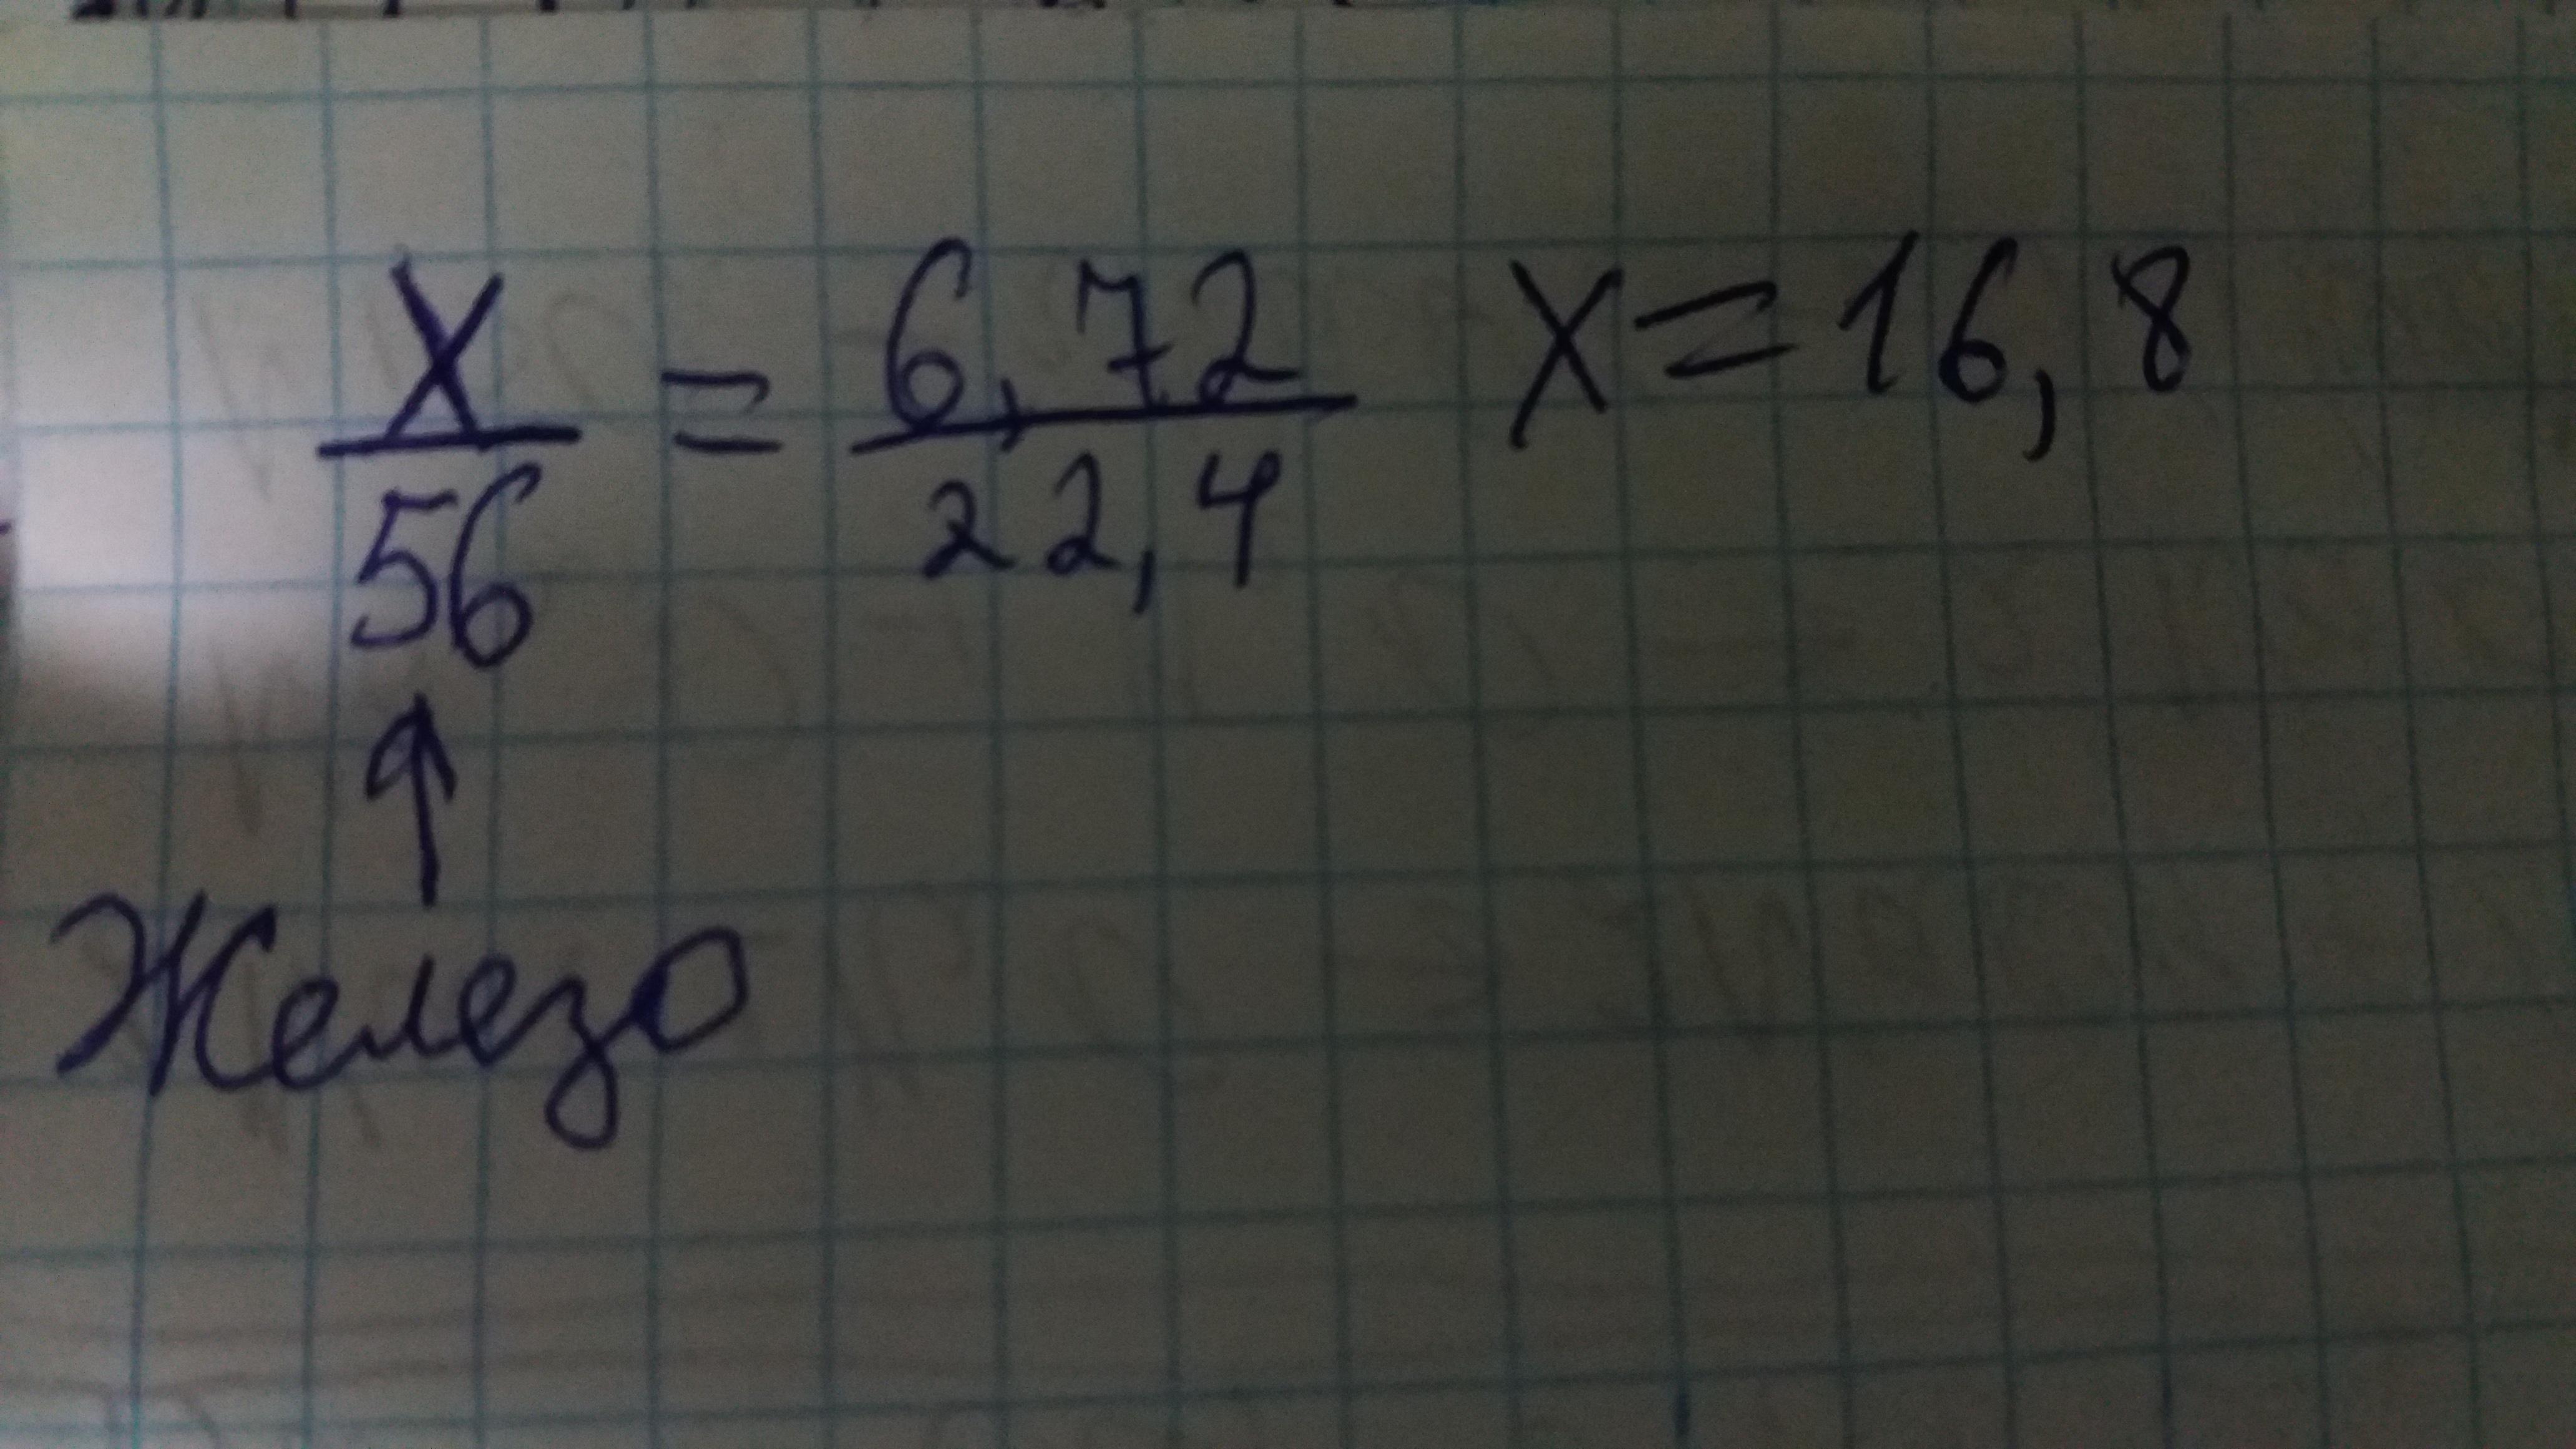 X/56 = 6,72/22,4 X=16,8
↑
Железо